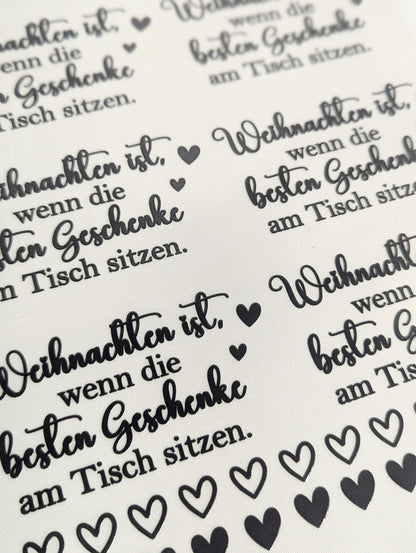 Weihnachten ist,
wenn die
besten Geschenke
am Tisch sitzen.
Weihnachten
wenn die
besten Geschenke
am Tisch sitzen.
Weihnachten ist,
wenn die
besten Geschenke
am Tisch sitzen.
Weihnachten ist,
wenn die
besten Geschenke
am Tisch sitzen.
Weihnachten ist,
wenn die
besten Geschenke
am Tisch sitzen.
Weihnachten
wenn
besten G
am Tis